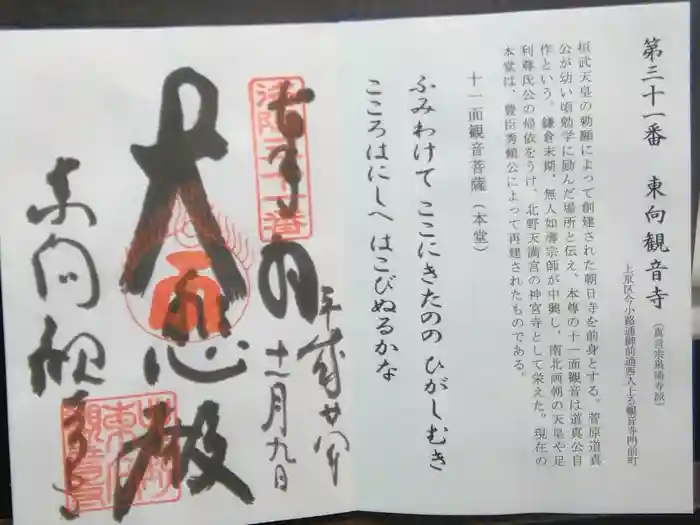 第三十一番　東向観音寺（真言宗泉涌寺派）
上京区今小路通御前通西入上る観音寺門前町
桓武天皇の勅願によって創建された朝日寺を前身とする。菅原道真
公が幼い頃勉学に励んだ場所と伝え、本尊の十一面観音は道真公自
作という。鎌倉末期、無人如導宗師が中興し、南北両朝の天皇や足
利尊氏公の帰依をうけ、北野天満宮の神宮寺として栄えた。現在の
本堂は、豊臣秀頼公によって再建されたものである。
十一面観音菩薩（本堂）
ふみわけて ここにきたのの ひがしむき
こころはにしへ はこびぬるかな
奉拝
洛陽三十一番
平成廿八年
十一月九日
大悲殿
東向観音寺